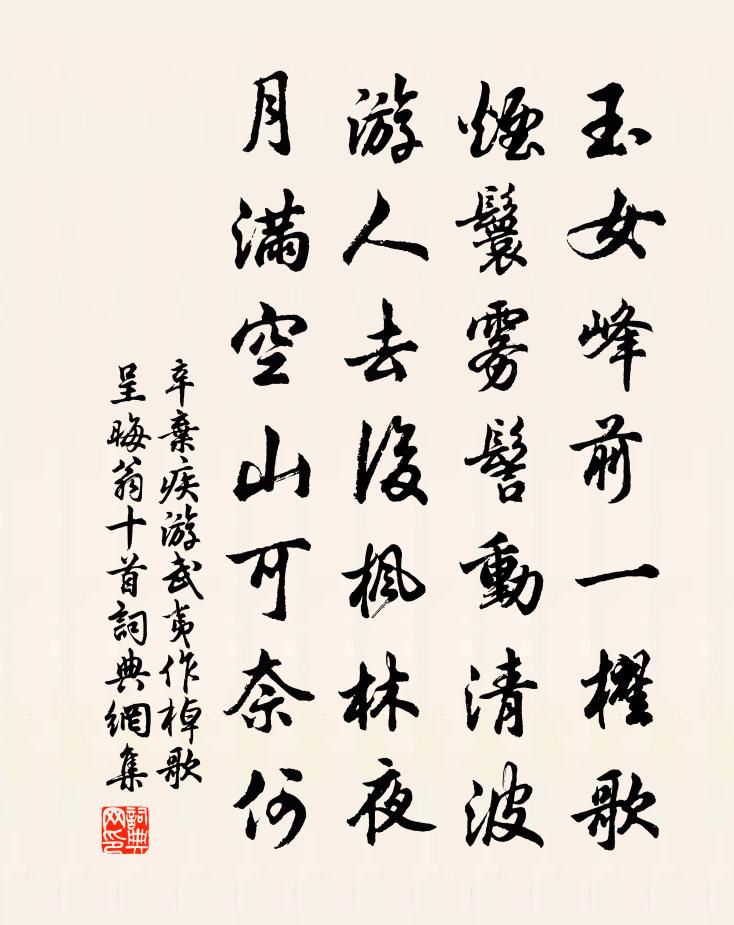 玉女峰前一櫂歌
煙鬟霧髻動清波
游人去後楓林夜
月滿空山可奈何
辛棄疾游武夷作棹歌
呈晦翁十首詞典網集
詞典網印